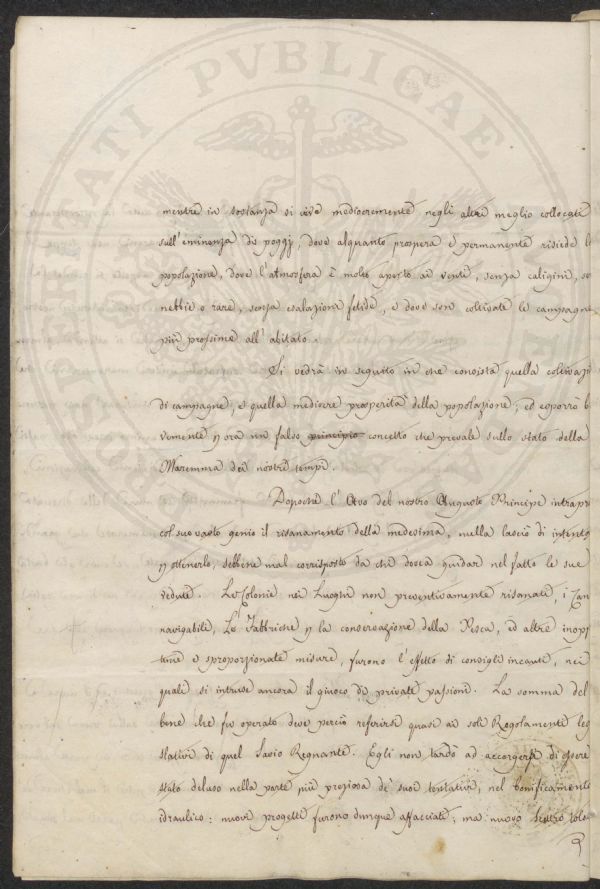 mentre in sostanza si vive mediocremente negli altri meglio collocati
sull'eminenza di poggj, dove alquanto prospera e permanente risiede l
popolazione, dove l'atmosfera è molto aperto ai venti, senza caligini, se
nebbie o rare, senza esalazioni fetide, e dove son coltivate le campagne
più prossime all'abitato.
Si vedrà in seguito in che consista quella coltivazi
di campagne, e quella mediocre prosperità della popolazione; ed esporrò b
vemente p ora un falso principio concetto che prevale sullo stato della
Maremma dei nostri tempi.
Dopoche l'Avo del nostro Augusto Principe intrapr
col suo vasto genio il risanamento della medesima, nulla lasciò di intento
p ottenerlo, sebbene mal corrisposto da chi dovea guidar nel fatto le sue
vedute. Le Colonie nei Luoghi non preventivamente risanati, i Can
navigabili, Le Fabbriche p la conservazione della Pesca, ed altre inop
tune e sproporzionate misure, furono l'effetto di consigli incauti, nei
quali si intruse ancora il giuoco di private passioni. La somma del
bene che fu operato deve perciò referirsi quasi ai soli Regolamenti leg
slativi di quel Savio Regnante. Egli non tardò ad accorgersi di essere
stato deluso nella parte più preziosa de' suoi tentativi, nel bonificamento
idraulico: nuovi progetti furono dunque affacciati; ma nuovo
PVBLICAE